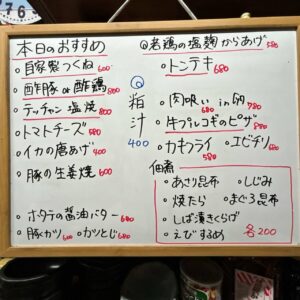 76
本日のおすすめ
・自家製つくね 600
・酢豚 or 酢鶏 680
・テッチャン塩焼 800
・トマトチーズ 580
・イカの唐あげ 400
・豚の生姜焼 600
・ホタテの醤油バター 680
・豚ガツ 600 ・ガツとじ 680
◎粕汁 400
◎若鶏の塩麹からあげ 580
・トンテキ 680
・肉吸い 680 in 卵 780
・牛プルコギのピザ 880
・カキフライ 580 ・エビチリ 680
佃煮
・あさり昆布 ・しじみ
・焼たら ・まぐろ昆布
・しば漬きくらげ
・えびするめ 各200